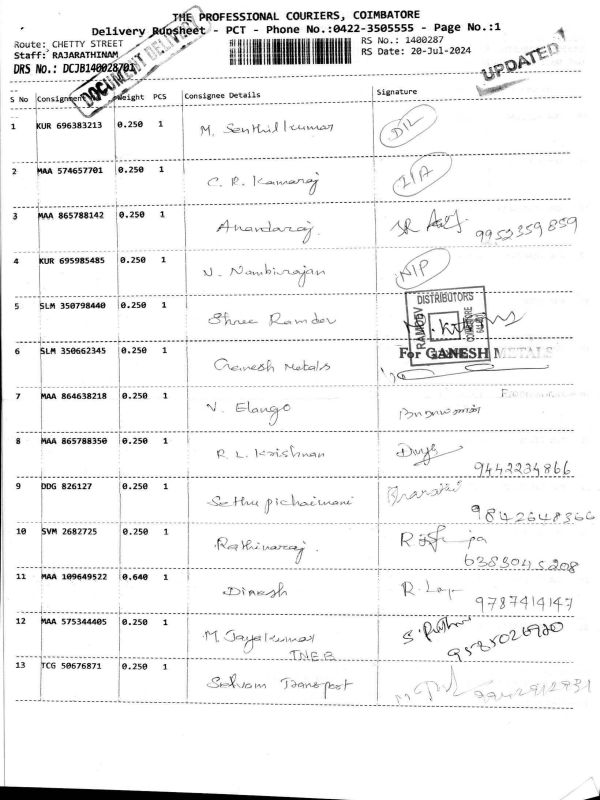 THE PROFESSIONAL COURIERS, COIMBATORE
Delivery Runsheet - PCT - Phone No.:0422-3505555 - Page No.:1
Route: CHETTY STREET RS No.: 1400287
Staff: RAJARATHINAM RS Date: 20-Jul-2024
DRS No.: DCJB140028701
DOCUMENT DELIVERY
UPDATED
S No Consignment Weight PCS Consignee Details Signature
1 KUR 696383213 0.250 1 M. Senthilkumar D/L
2 MAA 574657701 0.250 1 C. R. Kamaraj
3 MAA 865788142 0.250 1 Anandaraj. 9952359859
4 KUR 695985485 0.250 1 N. Nambirajan N/P
5 SLM 350798440 0.250 1 Shree Ramdev
RAMDEV DISTRIBUTORS COIMBATORE
6 SLM 350662345 0.250 1 Ganesh Metals For GANESH METALS
7 MAA 864638218 0.250 1 V. Elango நாராயணன்
8 MAA 865788350 0.250 1 R. L. Krishnan 9442234866
9 DDG 826127 0.250 1 Sethu pichaimani 9842648366
10 SVM 2682725 0.250 1 Rathinaraj. 6383045208
11 MAA 109649522 0.640 1 Dinesh 9787414147
12 MAA 575344405 0.250 1 M. Jayakumar
TNEB
13 TCG 50676871 0.250 1 Selvam Transport